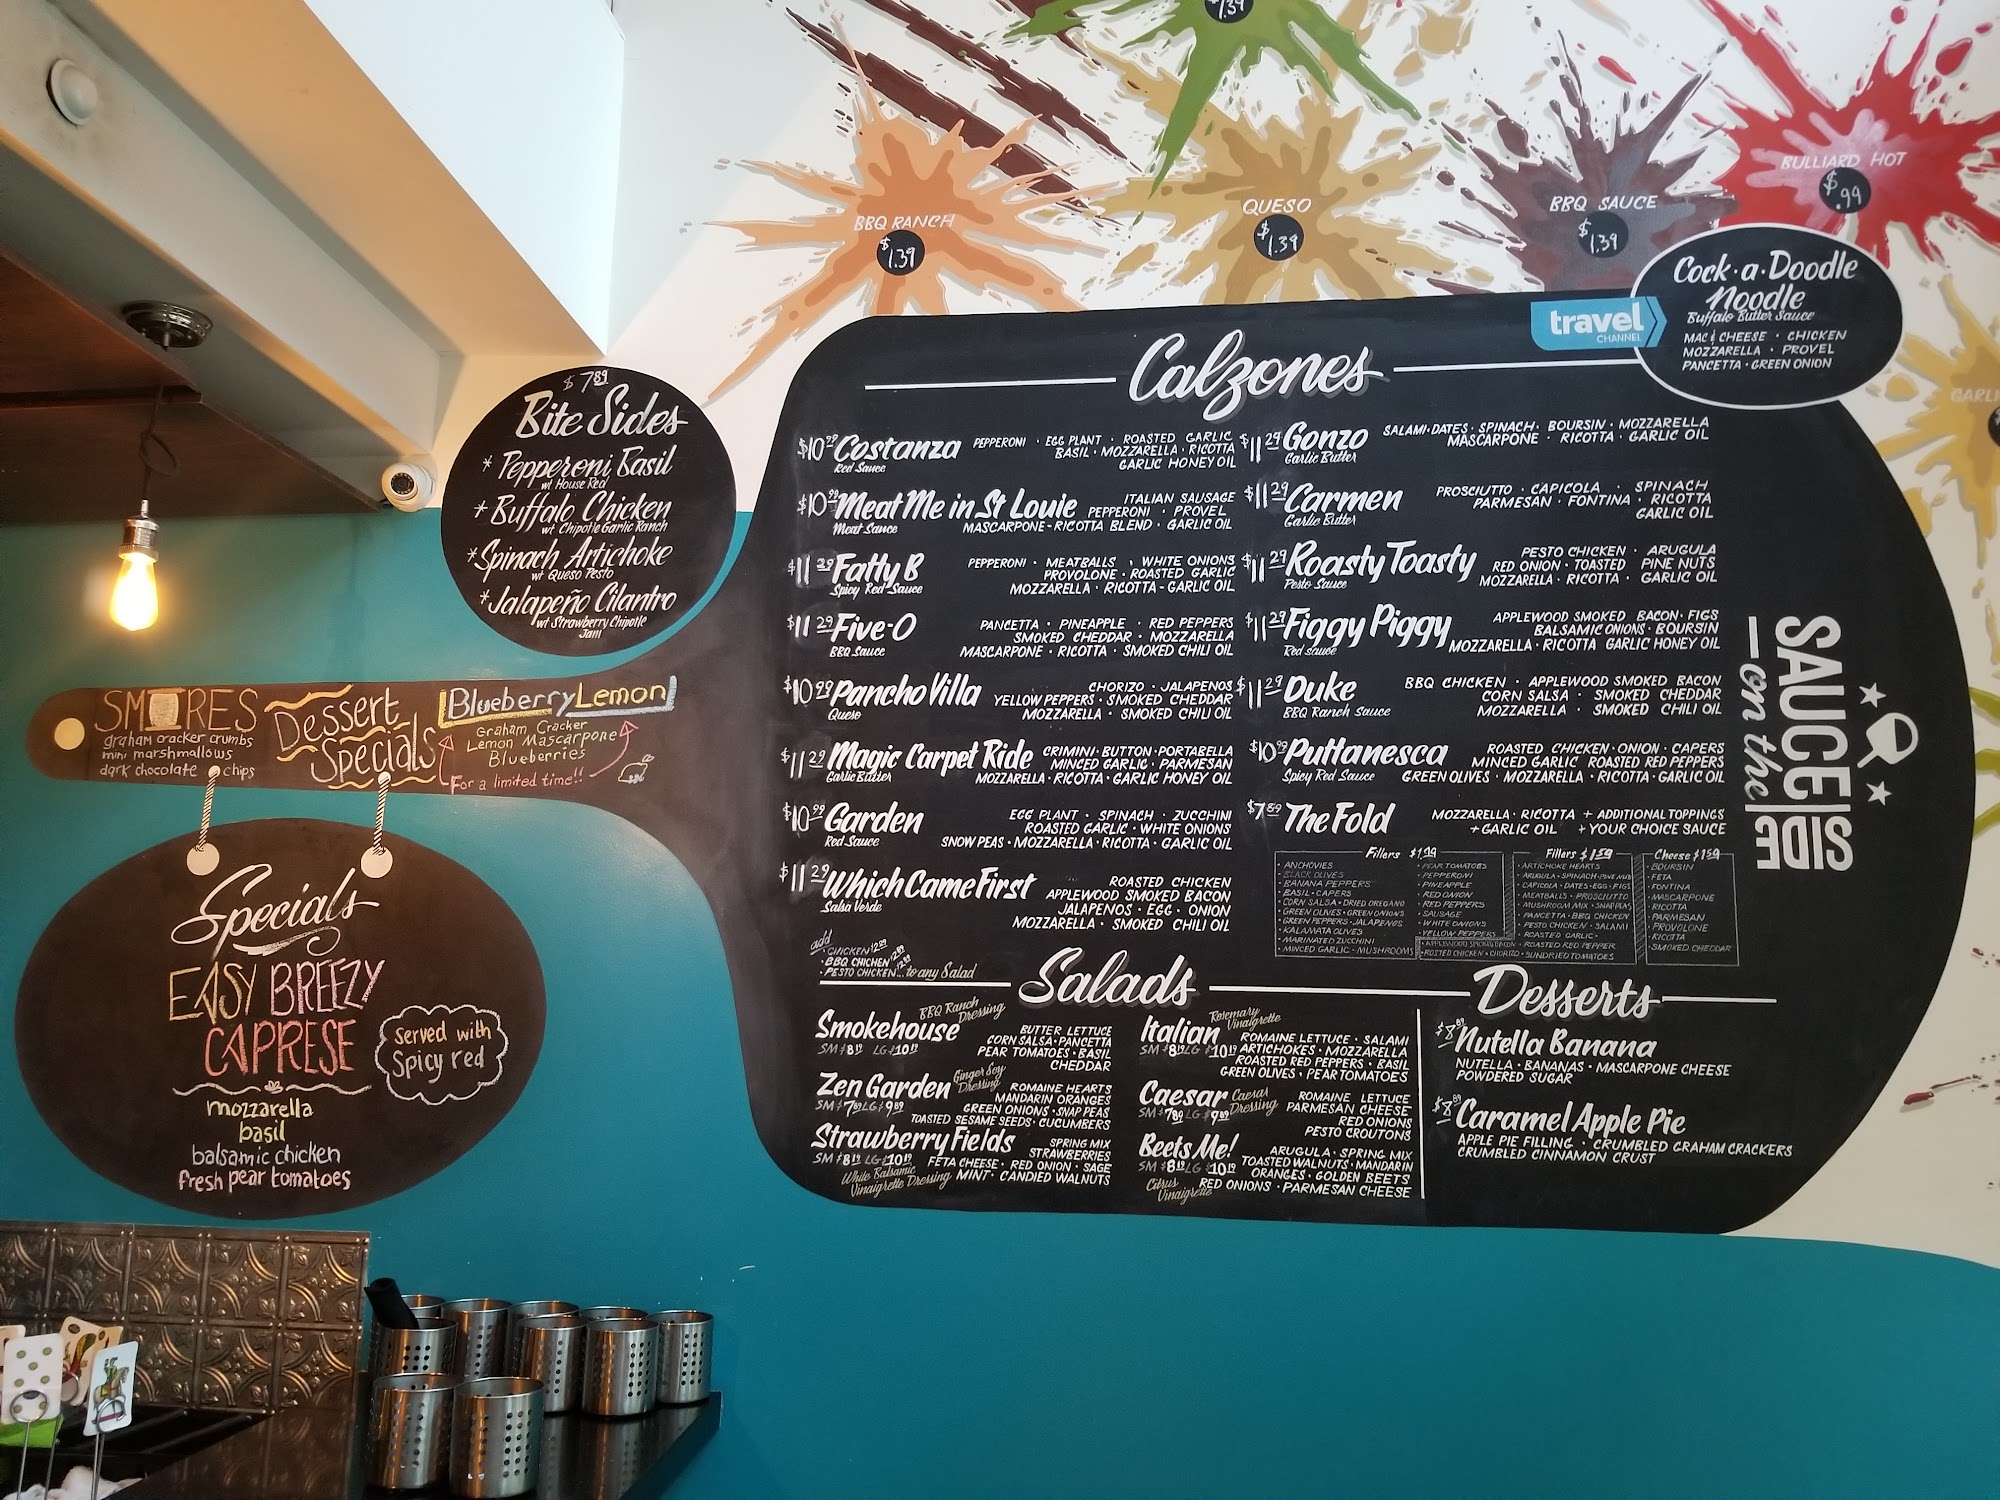 $1.39
BBQ RANCH
$1.39
QUESO
$1.39
BBQ SAUCE
$1.39
BULLIARD HOT
$.99
Cock·a·Doodle
Noodle
Buffalo Butter Sauce
MAC & CHEESE · CHICKEN
MOZZARELLA · PROVEL
PANCETTA · GREEN ONION
travel
CHANNEL
$7.89
Bite Sides
* Pepperoni Basil
w/ House Red
* Buffalo Chicken
w/ Chipotle Garlic Ranch
* Spinach Artichoke
w/ Queso Pesto
* Jalapeño Cilantro
w/ Strawberry Chipotle
Jam
SMORES
graham cracker crumbs
mini marshmallows
dark chocolate chips
Dessert
Specials
Blueberry Lemon
Graham Cracker
Lemon Mascarpone
Blueberries
For a limited time!!
Specials
EASY BREEZY
CAPRESE
Served with
Spicy red
mozzarella
basil
balsamic chicken
fresh pear tomatoes
Calzones
$10.99 Costanza
Red Sauce
PEPPERONI · EGG PLANT · ROASTED GARLIC
BASIL · MOZZARELLA · RICOTTA
GARLIC HONEY OIL
$10.99 Meat Me in St Louie
Meat Sauce
ITALIAN SAUSAGE
PEPPERONI · PROVEL
MASCARPONE-RICOTTA BLEND · GARLIC OIL
$11.29 Fatty B
Spicy Red Sauce
PEPPERONI · MEATBALLS · WHITE ONIONS
PROVOLONE · ROASTED GARLIC
MOZZARELLA · RICOTTA · GARLIC OIL
$11.29 Five-O
BBQ Sauce
PANCETTA · PINEAPPLE · RED PEPPERS
SMOKED CHEDDAR · MOZZARELLA
MASCARPONE · RICOTTA · SMOKED CHILI OIL
$10.99 Pancho Villa
Queso
CHORIZO · JALAPENOS
YELLOW PEPPERS · SMOKED CHEDDAR
MOZZARELLA · SMOKED CHILI OIL
$11.29 Magic Carpet Ride
Garlic Butter
CRIMINI · BUTTON · PORTABELLA
MINCED GARLIC · PARMESAN
MOZZARELLA · RICOTTA · GARLIC HONEY OIL
$10.99 Garden
Red Sauce
EGG PLANT · SPINACH · ZUCCHINI
ROASTED GARLIC · WHITE ONIONS
SNOW PEAS · MOZZARELLA · RICOTTA · GARLIC OIL
$11.29 Which Came First
Salsa Verde
ROASTED CHICKEN
APPLEWOOD SMOKED BACON
JALAPENOS · EGG · ONION
MOZZARELLA · SMOKED CHILI OIL
$11.29 Gonzo
Garlic Butter
SALAMI · DATES · SPINACH · BOURSIN · MOZZARELLA
MASCARPONE · RICOTTA · GARLIC OIL
$11.29 Carmen
Garlic Butter
PROSCIUTTO · CAPICOLA · SPINACH
PARMESAN · FONTINA · RICOTTA
GARLIC OIL
$11.29 Roasty Toasty
Pesto Sauce
PESTO CHICKEN · ARUGULA
RED ONION · TOASTED PINE NUTS
MOZZARELLA · RICOTTA · GARLIC OIL
$11.29 Figgy Piggy
Red sauce
APPLEWOOD SMOKED BACON · FIGS
BALSAMIC ONIONS · BOURSIN
MOZZARELLA · RICOTTA GARLIC HONEY OIL
$11.29 Duke
BBQ Ranch Sauce
BBQ CHICKEN · APPLEWOOD SMOKED BACON
CORN SALSA · SMOKED CHEDDAR
MOZZARELLA · SMOKED CHILI OIL
$10.99 Puttanesca
Spicy Red Sauce
ROASTED CHICKEN · ONION · CAPERS
MINCED GARLIC ROASTED RED PEPPERS
GREEN OLIVES · MOZZARELLA · RICOTTA · GARLIC OIL
$7.89 The Fold
MOZZARELLA · RICOTTA + ADDITIONAL TOPPINGS
+ GARLIC OIL + YOUR CHOICE SAUCE
Fillers $1.19
· ANCHOVIES
· BLACK OLIVES
· BANANA PEPPERS
· BASIL · CAPERS
· CORN SALSA · DRIED OREGANO
· GREEN OLIVES · GREEN ONIONS
· GREEN PEPPERS · JALAPENOS
· KALAMATA OLIVES
· MARINATED ZUCCHINI
· MINCED GARLIC · MUSHROOMS
· PEAR TOMATOES
· PEPPERONI
· PINEAPPLE
· RED ONION
· RED PEPPERS
· SAUSAGE
· WHITE ONIONS
· YELLOW PEPPERS
Fillers $1.59
· ARTICHOKE HEARTS
· ARUGULA · SPINACH · PINE NUTS
· CAPICOLA · DATES · EGG · FIGS
· MEATBALLS · PROSCIUTTO
· MUSHROOM MIX · SNAP PEAS
· PANCETTA · BBQ CHICKEN
· PESTO CHICKEN · SALAMI
· ROASTED GARLIC
· APPLEWOOD SMOKED BACON · ROASTED RED PEPPER
· ROSTED CHICKEN · CHORIZO · SUNDRIED TOMATOES
Cheese $1.59
· BOURSIN
· FETA
· FONTINA
· MASCARPONE
· RICOTTA
· PARMESAN
· PROVOLONE
· RICOTTA
· SMOKED CHEDDAR
SAUCE
on the
SIDE
add
· CHICKEN $2.99
· BBQ CHICHEN $2.99
· PESTO CHICKEN $2.99 ... to any Salad
Salads
Smokehouse
BBQ Ranch
Dressing
SM $8.19 LG $10.19
BUTTER LETTUCE
CORN SALSA · PANCETTA
PEAR TOMATOES · BASIL
CHEDDAR
Zen Garden
Ginger Soy
Dressing
SM $7.89 LG $9.89
ROMAINE HEARTS
MANDARIN ORANGES
GREEN ONIONS · SNAP PEAS
TOASTED SESAME SEEDS · CUCUMBERS
Strawberry Fields
SM $8.19 LG $10.19
White Balsamic
Vinaigrette Dressing
SPRING MIX
STRAWBERRIES
FETA CHEESE · RED ONION · SAGE
MINT · CANDIED WALNUTS
Italian
Rosemary
Vinaigrette
SM $8.19 LG $10.19
ROMAINE LETTUCE · SALAMI
ARTICHOKES · MOZZARELLA
ROASTED RED PEPPERS · BASIL
GREEN OLIVES · PEAR TOMATOES
Caesar
Caesar
Dressing
SM $7.89 LG $9.89
ROMAINE LETTUCE
PARMESAN CHEESE
RED ONIONS
PESTO CROUTONS
Beets Me!
SM $8.19 LG $10.19
Citrus
Vinaigrette
ARUGULA · SPRING MIX
TOASTED WALNUTS · MANDARIN
ORANGES · GOLDEN BEETS
RED ONIONS · PARMESAN CHEESE
Desserts
$8.89 Nutella Banana
NUTELLA · BANANAS · MASCARPONE CHEESE
POWDERED SUGAR
$8.89 Caramel Apple Pie
APPLE PIE FILLING · CRUMBLED GRAHAM CRACKERS
CRUMBLED CINNAMON CRUST